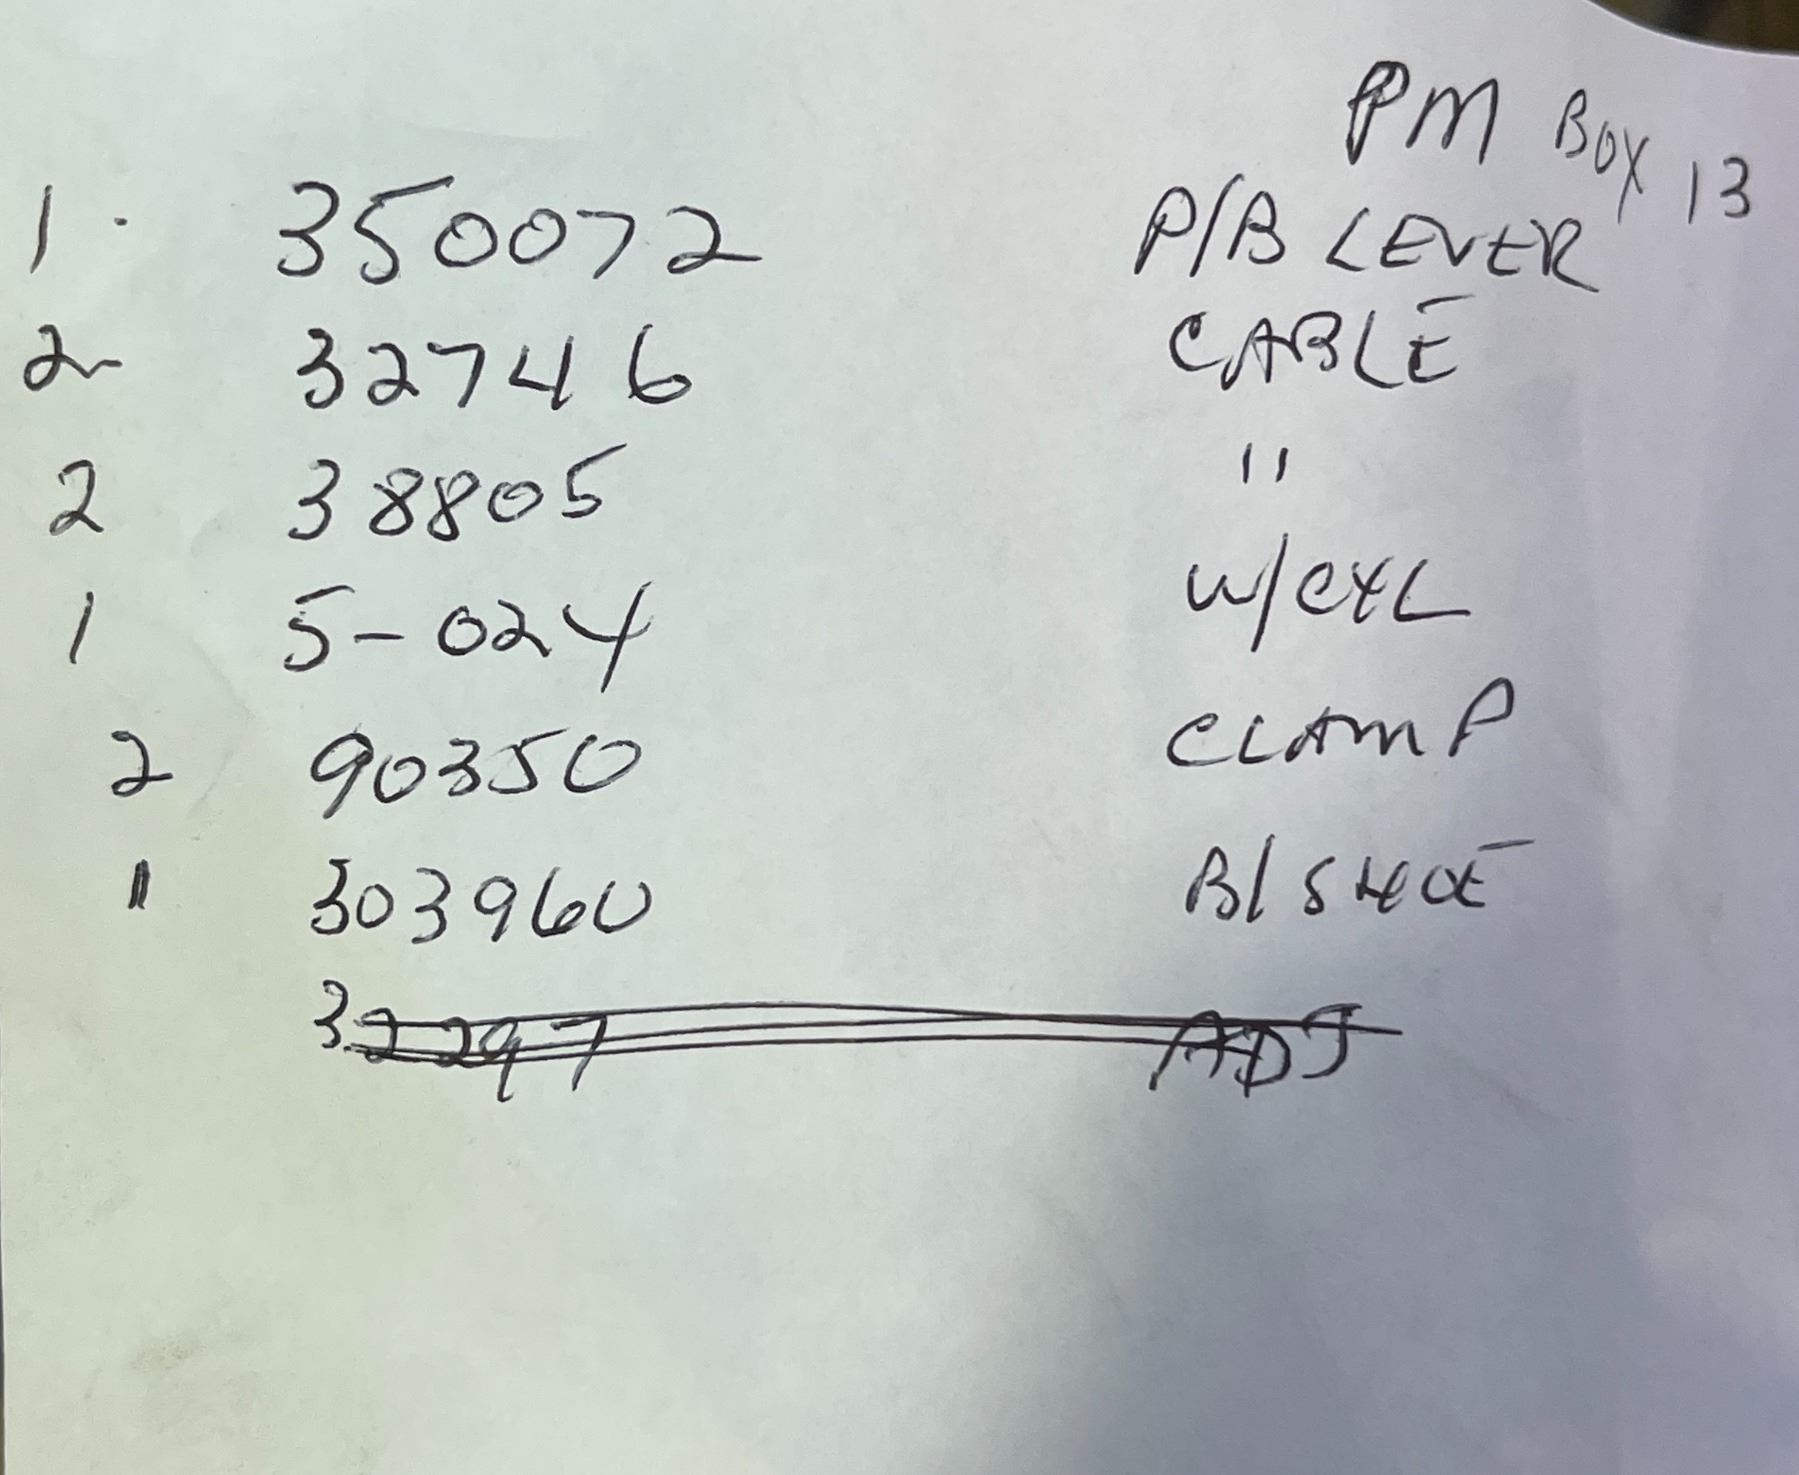 PM BOX 13
1. 350072 P/B LEVER
2 32746 CABLE
2 38805 "
1 5-024 W/CYL
2 90350 CLAMP
1 303960 B/SHOE
32297 ADJ